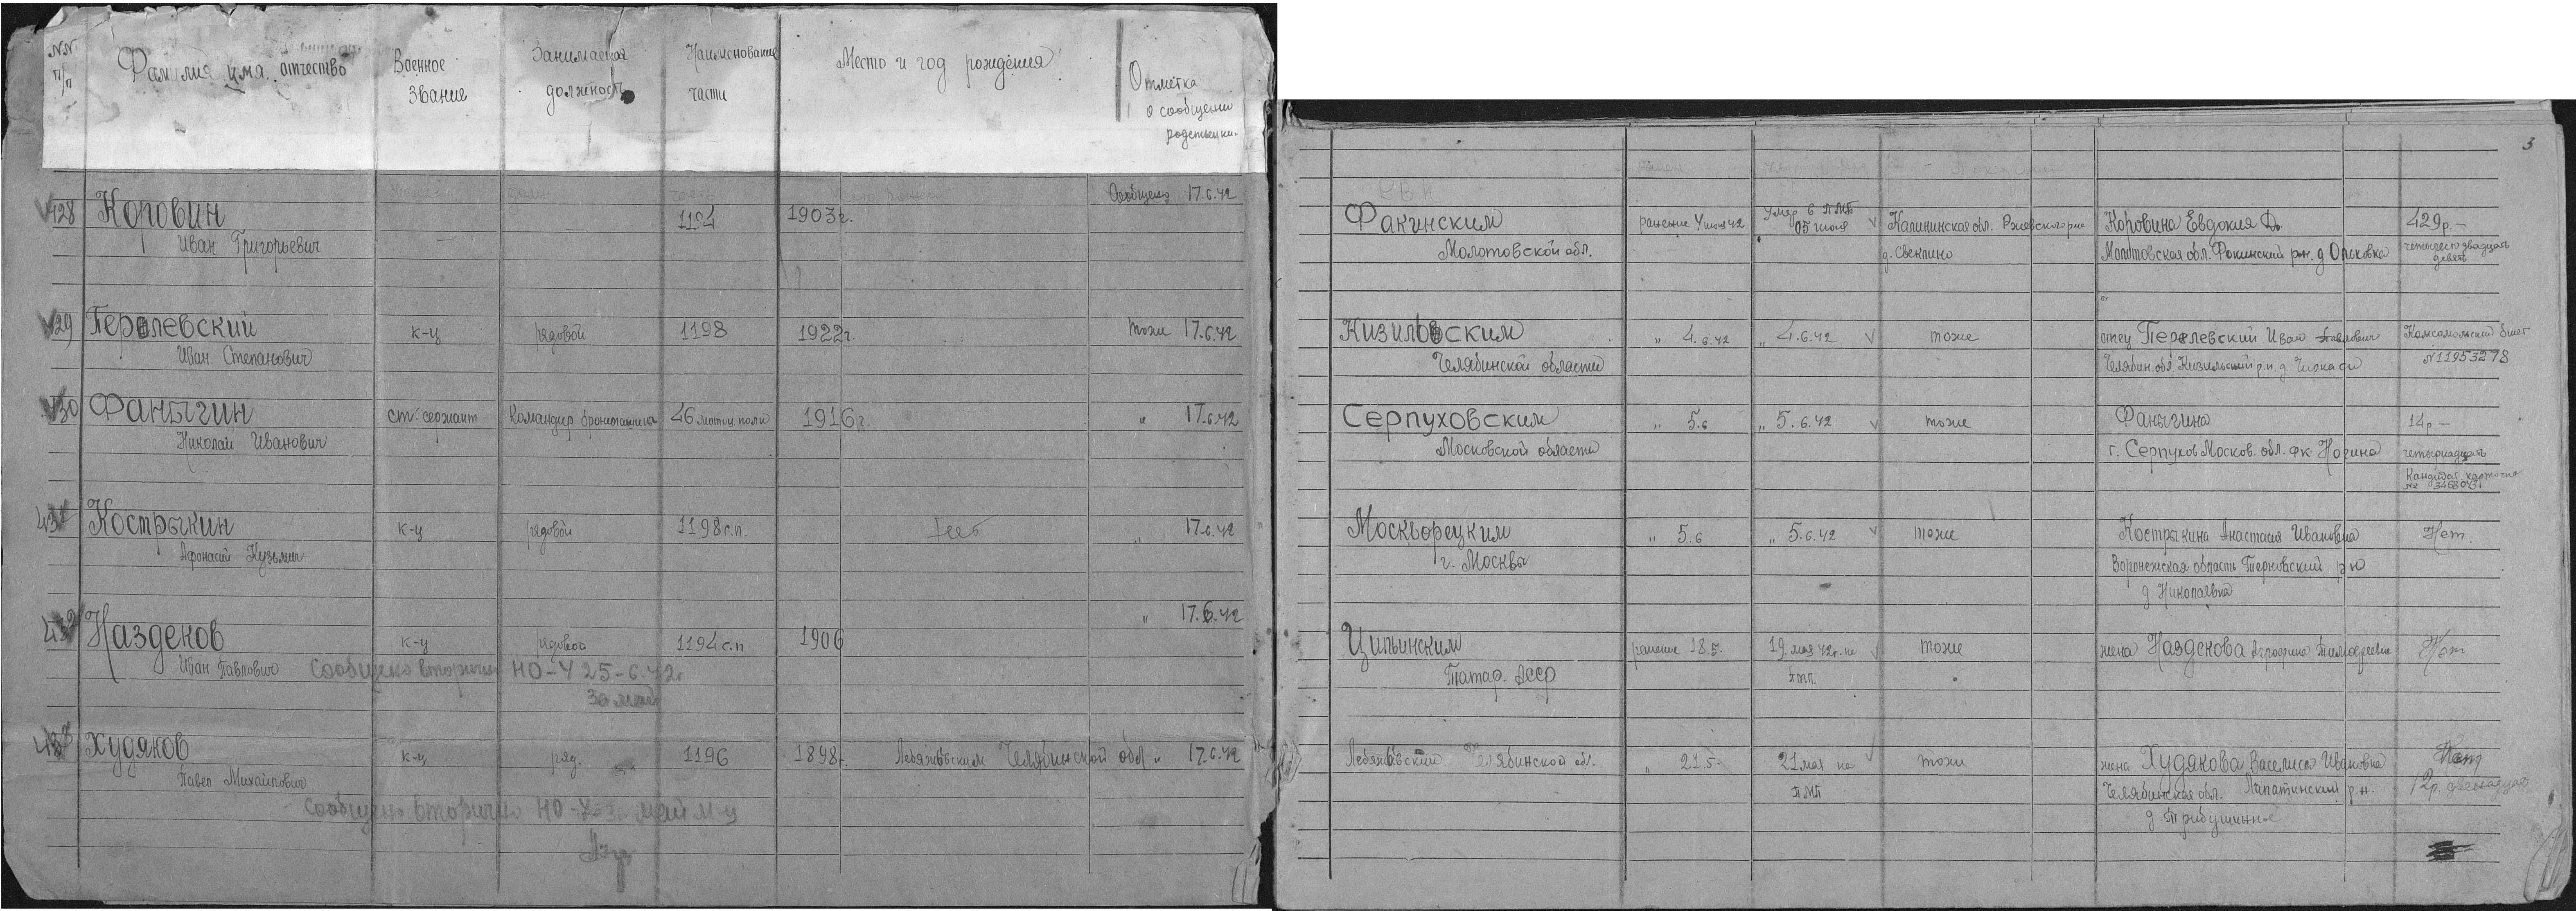 NN п/п Фамилия имя отчество Военное звание Занимаемая должность Наименование части Место и год рождения Отметка о сообщении
428 Коровин 1194 1903г. Сообщено 17.6.42
Иван Григорьевич
429 Перелевский к-ц рядовой 1198 1922г. тоже 17.6.42
Иван Степанович
430 Фаныгин ст. сержант Командир 46 мотоц. полк 1916г. " 17.6.42
Николай Иванович
431 Кострыкин к-ц рядовой 1198 с.п. " 17.6.42
Афонасий Кузьмич
432 Назденов к-ц рядовой 1194 с.п 1906 " 17.6.42
Иван Павлович Сообщено вторично НО-4 25-6.42г
за май
433 Худяков к-ц ряд. 1196 1898г. Лебяжьвским Челябинской обл " 17.6.42
Павел Михайлович
Сообщено вторично май м-ц
3
Факинским ранение 4 июня 42 Умер в ПМП 05 июня Калининская обл. Ржевского р-на Коровина Евдокия 429р.-
Молотовской обл. д. Свеклино Молотовская обл. Факинский р-н. д Ольховка четыресто двадцать девять
Кизиловским " 4.6.42 " 4.6.42 тоже отец Перелевский Иван Комсомольский билет
Челябинской области Челябин. обл. Кизильский р.н. д N11953278
Серпуховским " 5.6 " 5.6.42 тоже Фаныгина 14р-
Московской области г. Серпухов Москов. обл. фк Ногина четырнадцать
Кандидат. карточка
Москворецким " 5.6 " 5.6.42 тоже Кострыкина Анастасия Ивановна Нет.
г. Москвы Воронежская область Терновский р-н
д Николаевка
Ципьинским ранение 18.5. 19 мая 42г. на тоже жена Назденова Аграфина Тимофеевна Нет
Татар. АССР пмп.
Лебяжьвский Челябинской обл. " 21.5. 21 мая на тоже жена Худякова Васелиса Ивановна Нет
ПМП Челябинская обл. р.н. 12р. двенадцать
д